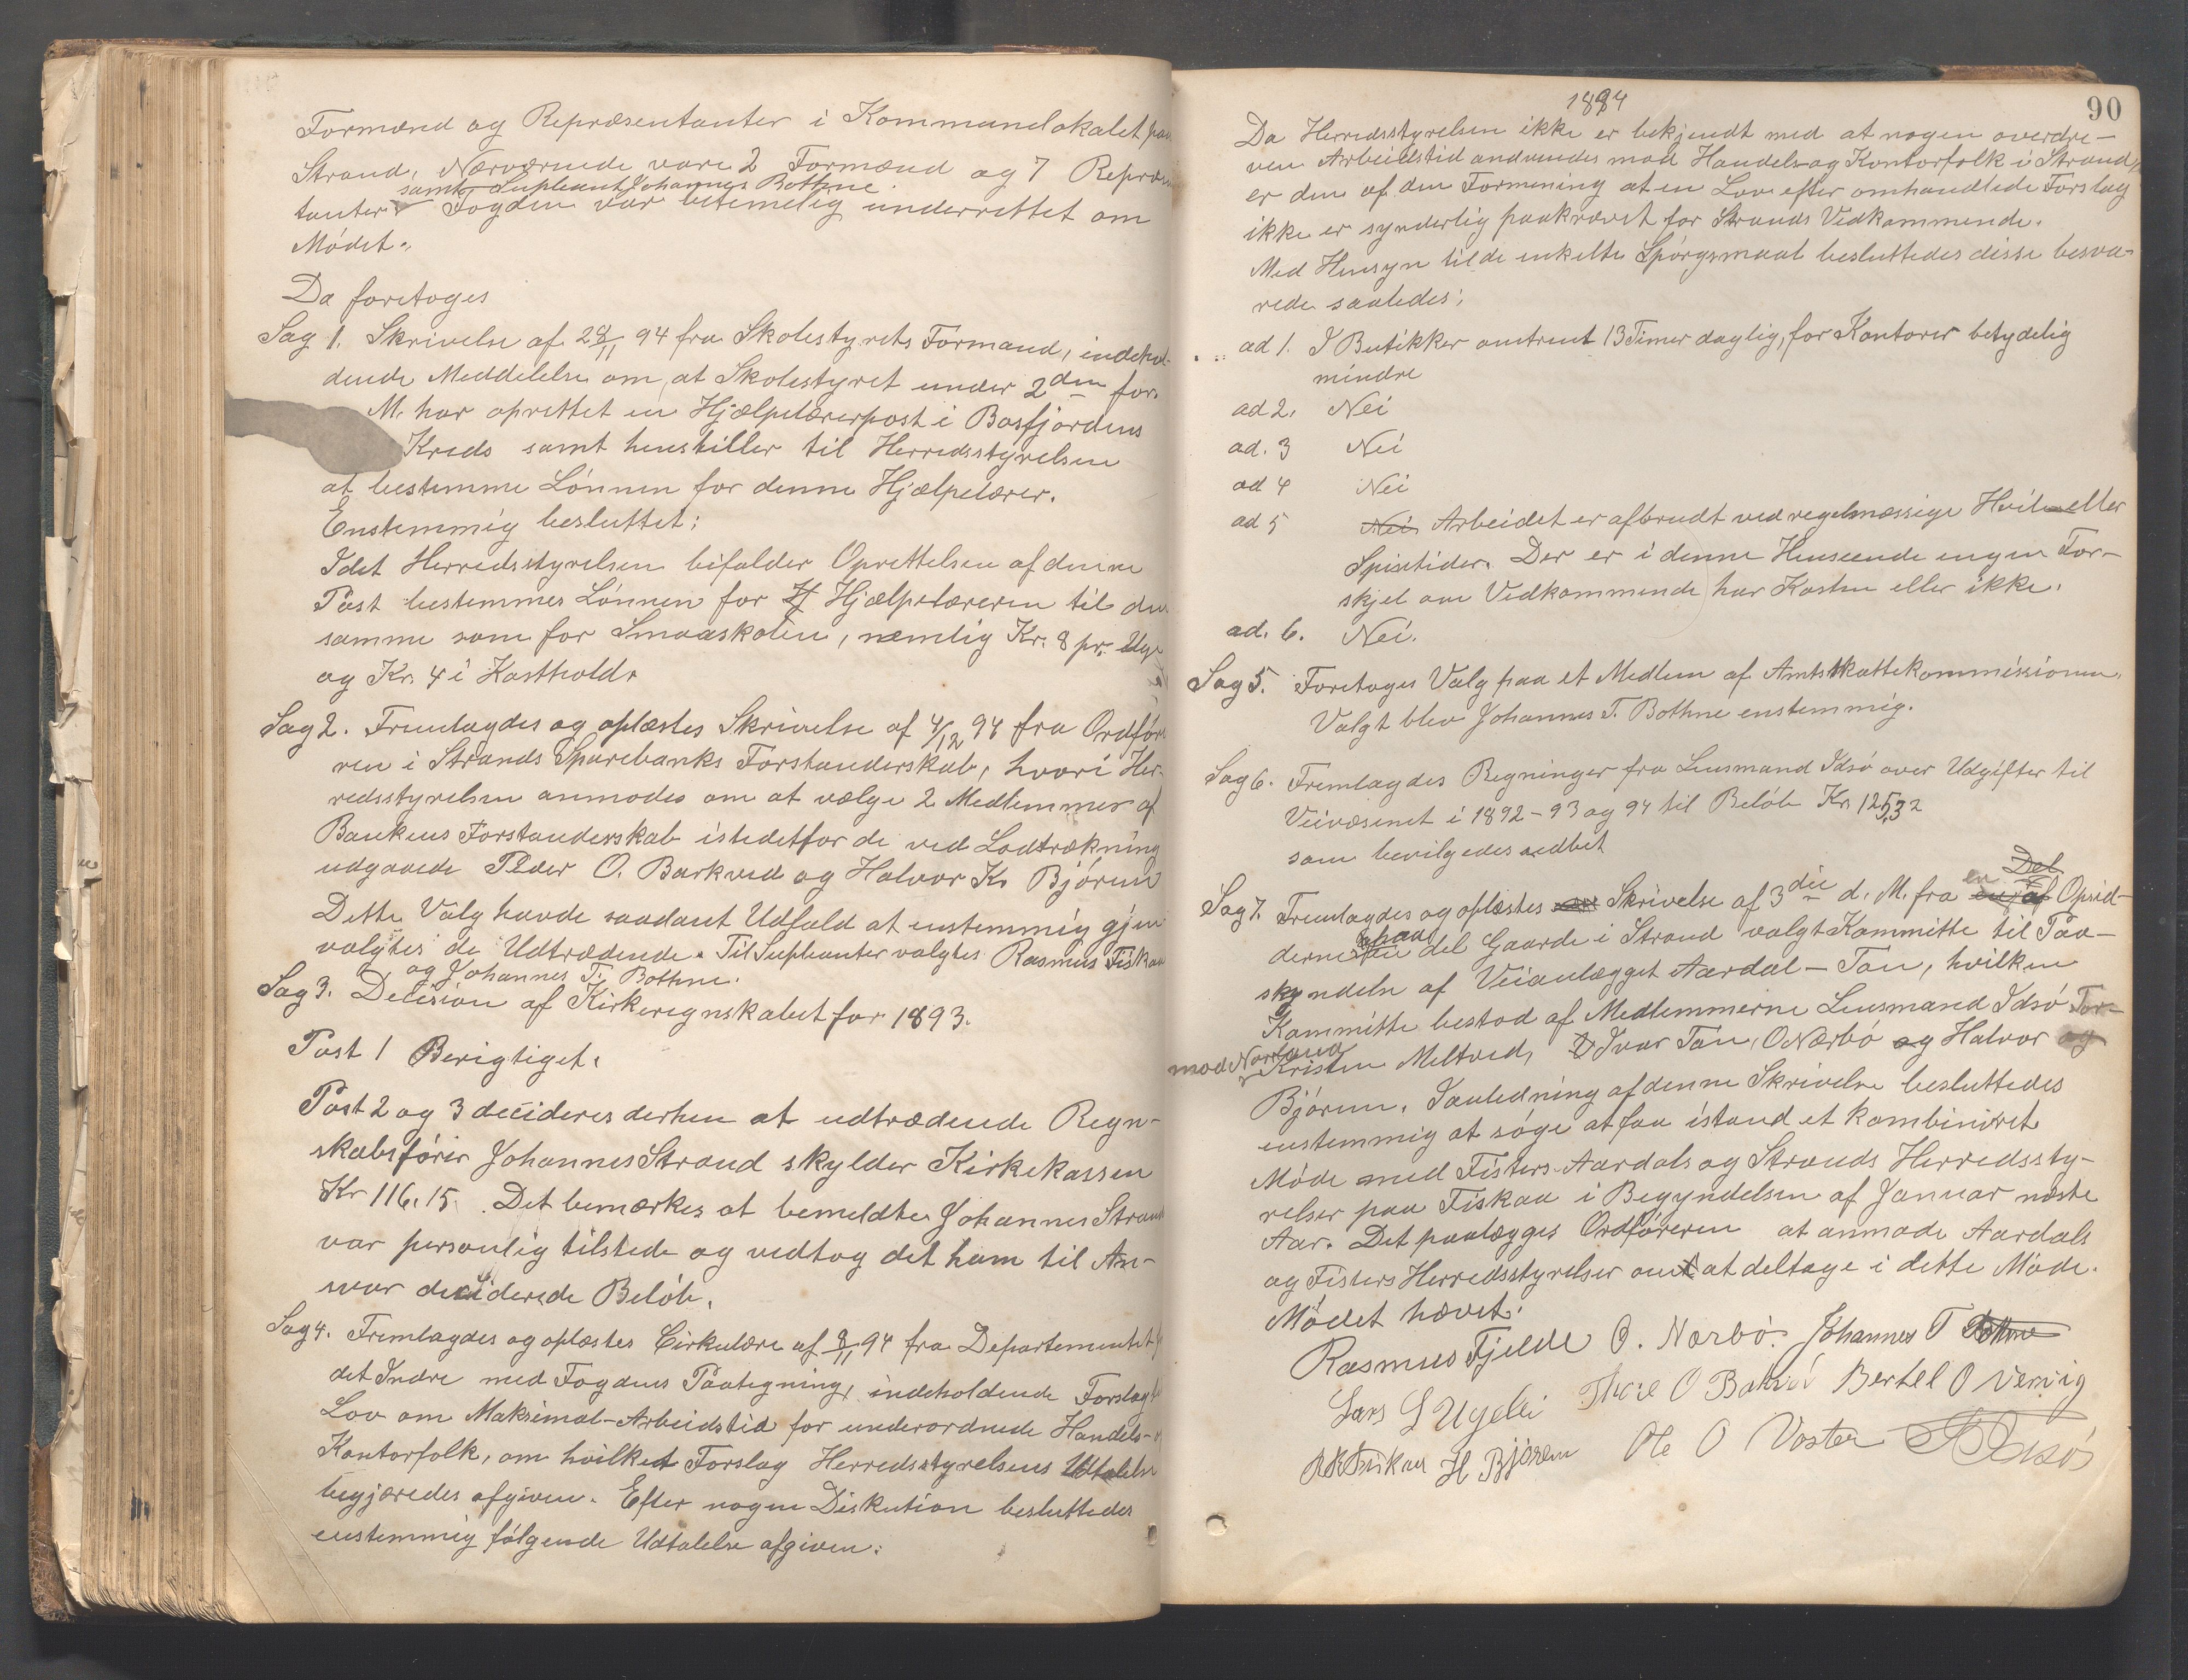 Formænd og Repræsentanter i Kommunelokalet paa
Strand, Nærværende vare 2 Formænd og 7 Repræsen
samt Supleant Johannes Bothne.
tanter Fogden var betimelig underrettet om
Mødet.
Da foretoges
Sag 1. Skrivelse af 28/11 94 fra Skolestyrets Formand, indehol-
dende Meddelelse om, at Skolestyret under 2den for.
M. har oprettet en Hjælpelærerpost i Bosfjordens
Kreds samt henstiller til Herredsstyrelsen
at bestemme Lønnen for denne Hjælpelærer.
Enstemmig besluttet:
Idet Herredsstyrelsen bifalder Oprettelsen af denne
Post bestemmes Lønnen for Hjælpelæreren til den
samme som for Smaaskolen, nemlig Kr. 8 pr. Uge
og Kr. 4 i Kosthold.
Sag 2. Fremlagdes og oplæstes Skrivelse af 4/12 94 fra Ordfør
ren i Strands Sparebanks Forstanderskab, hvori Her-
redsstyrelsen anmodes om at vælge 2 Medlemmer af
Bankens Forstanderskab istedetfor de ved Lodtrækning
udgaaede Peder O. Barkved og Halvor K. Bjøreim
Dette Valg havde saadant Udfald at enstemmig gjen
valgtes de Udtrædende. Til Supleanter valgtes Rasmus Fiskaa
og Johannes T. Bothne.
Sag 3. Decision af Kirkeregnskabet for 1893.
Post 1 Berigtiget.
Post 2 og 3 decideres derhen at udtrædende Regn-
skabsfører Johannes Strand skylder Kirkekassen
Kr 116.15. Det bemærkes at bemeldte Johannes Strand
var personlig tilstede og vedtog det ham til An-
svar deciderede Beløb.
Sag 4. Fremlagdes og oplæstes Cirkulære af 9/11 94 fra Departementet f
det Indre med Fogdens Paategning, indeholdende Forslag t
Lov om Maksimal-Arbeidstid for underordnede Handels- o
Kontorfolk, om hvilket Forslag Herredsstyrelsens Udtalelse
begjæredes afgiven. Efter nogen Diskution besluttedes
enstemmig følgende Udtalelse afgiven:
1894
90
Da Herredsstyrelsen ikke er bekjendt med at nogen overdre-
ven Arbeidstid anvendes mod Handels- og Kontorfolk i Strand,
er den af den Formening at en Lov efter omhandlede Forslag
ikke er synderlig paakrævet for Strands Vedkommende.
Med Hensyn til de enkelte Spørgsmaal besluttedes disse besva-
rede saaledes:
ad 1. I Butikker omtrent 13 Timer daglig, for Kontorer betydelig
mindre
ad 2. Nei
ad. 3 Nei
ad 4 Nei
ad 5 Nei Arbeidet er afbrudt ved regelmæssige Hvile eller
Spisetider. Der er i denne Henseende ingen For-
skjel om Vedkommende har Kosten eller ikke.
ad. 6. Nei.
Sag 5. Foretoges Valg paa et Medlem af Amtsskattekommissionen.
Valgt blev Johannes T. Bothne enstemmig.
Sag 6. Fremlagdes Regninger fra Lensmand Idsø over Udgifter til
Veivæsenet i 1892 - 93 og 94 til Beløb Kr 125,32
som bevilgedes vedtet
en Del
Sag 7. Fremlagdes og oplæstes Skrivelse af 3die d. M. fra en af Opsid-
paa
derne del Gaarde i Strand valgt Kommitte til Paa-
skyndelse af Veianlægget Aardal - Tau, hvilken
Kommitte bestod af Medlemmerne Lensmand Idsø For-
mod Norland
Kristen Meltved, Ivar Tau, O Nærbø og Halvor og
Bjøreim. I anledning af denne Skrivelse besluttedes
enstemmig at søge at faa istand et kombineret
Møde med Fisters Aardals og Strands Herredssty-
relser paa Fiskaa i Begyndelsen af Januar næste
Aar. Det paalægges Ordføreren at anmode Aardals
og Fisters Herredsstyrelser om at deltage i dette Møde.
Mødet hævet.
Rasmus Fjelde O. Nærbø. Johannes T Bothne
Lars L Ugelli Thore O Bakvè Bertel O Nervig
R R Fiskaa H Bjøreim Ole O Voster Idsøe